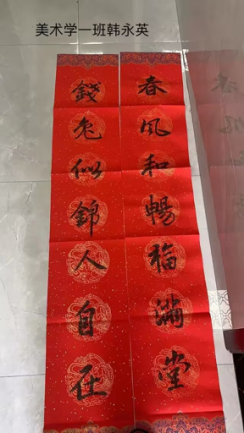 美术学一班韩永英
春風和暢福滿堂
錢兔似錦人自在